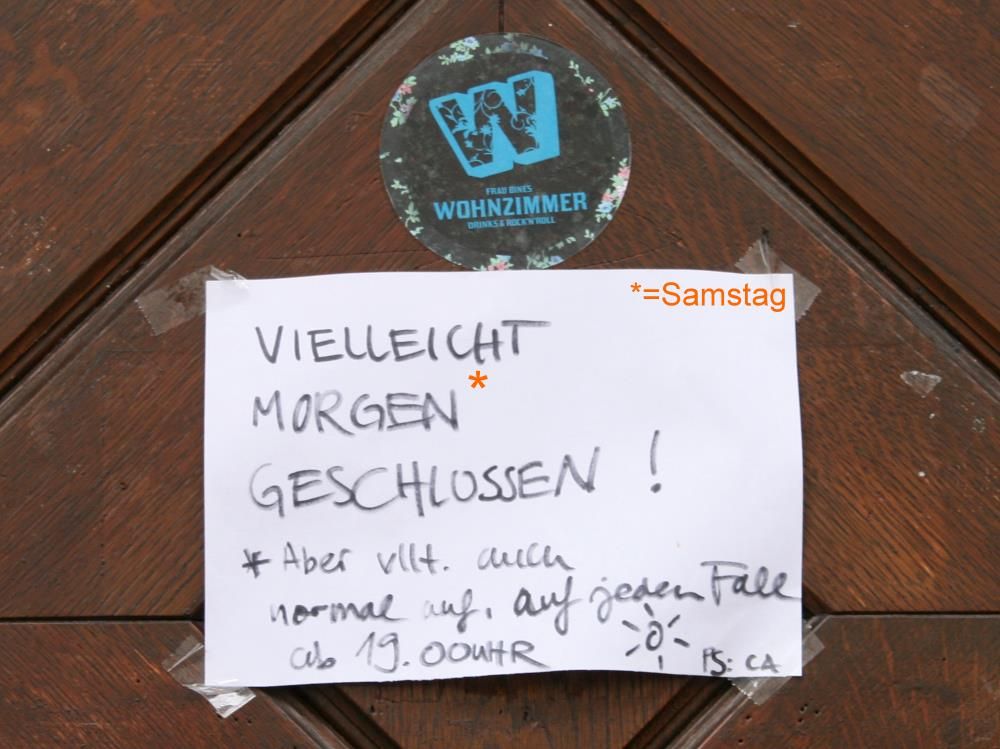 W
FRAU BINES
WOHNZIMMER
DRINKS & ROCK'N'ROLL
*=Samstag
VIELLEICHT
MORGEN*
GESCHLOSSEN !
* Aber vllt. auch
normal auf, auf jeden Fall
ab 19.00UHR
PS: CA